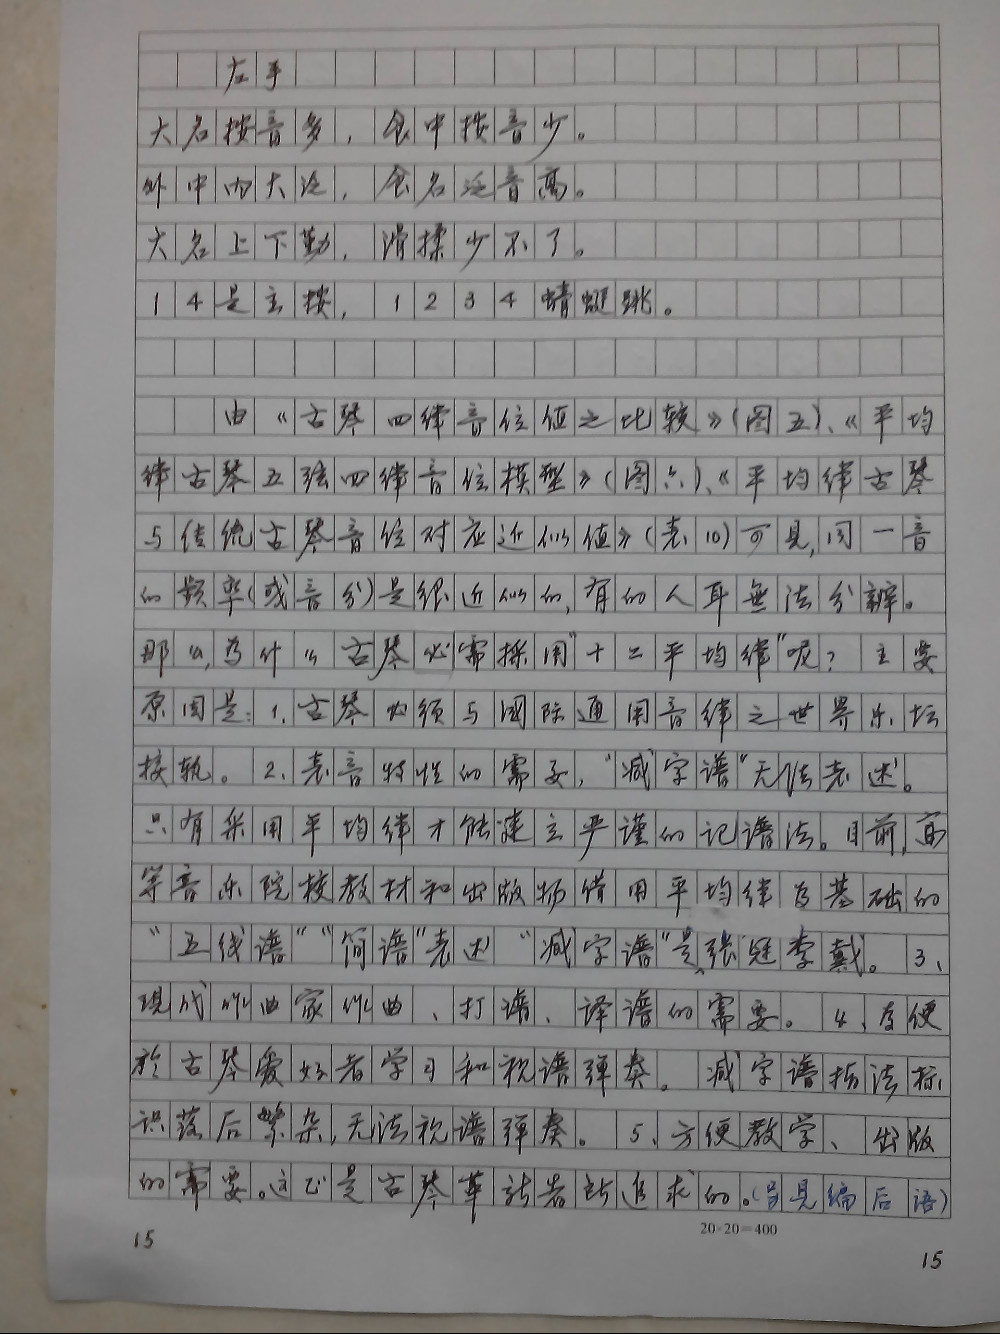 左手
大名按音多，食中按音少。
外中内大泛，食名泛音高。
大名上下勤，滑揉少不了。
14是主按，1234蜻蜓跳。
由《古琴四律音位值之比较》(图五)、《平均
律古琴五弦四律音位模型》(图六)、《平均律古琴
与传统古琴音位对应近似值》(表10)可见，同一音
的频率(或音分)是很近似的，有的人耳無法分辨。
那么，为什么古琴必需採用"十二平均律"呢？主要
原因是：1、古琴必须与國际通用音律之世界乐坛
接轨。2、表音特性的需要，"减字谱"无法表述。
只有采用平均律才能建立严谨的记谱法。目前，高
等音乐院校教材和出版物借用平均律为基础的
"五线谱""简谱"表述"减字谱"是张冠李戴。3、
現代作曲家作曲、打谱、译谱的需要。4、方便
於古琴爱好者学习和视谱弹奏。减字谱指法标
识落后繁杂，无法视谱弹奏。5、方便教学、出版
的需要。这正是古琴革新者所追求的。(另見编后语)
20×20=400
15
15